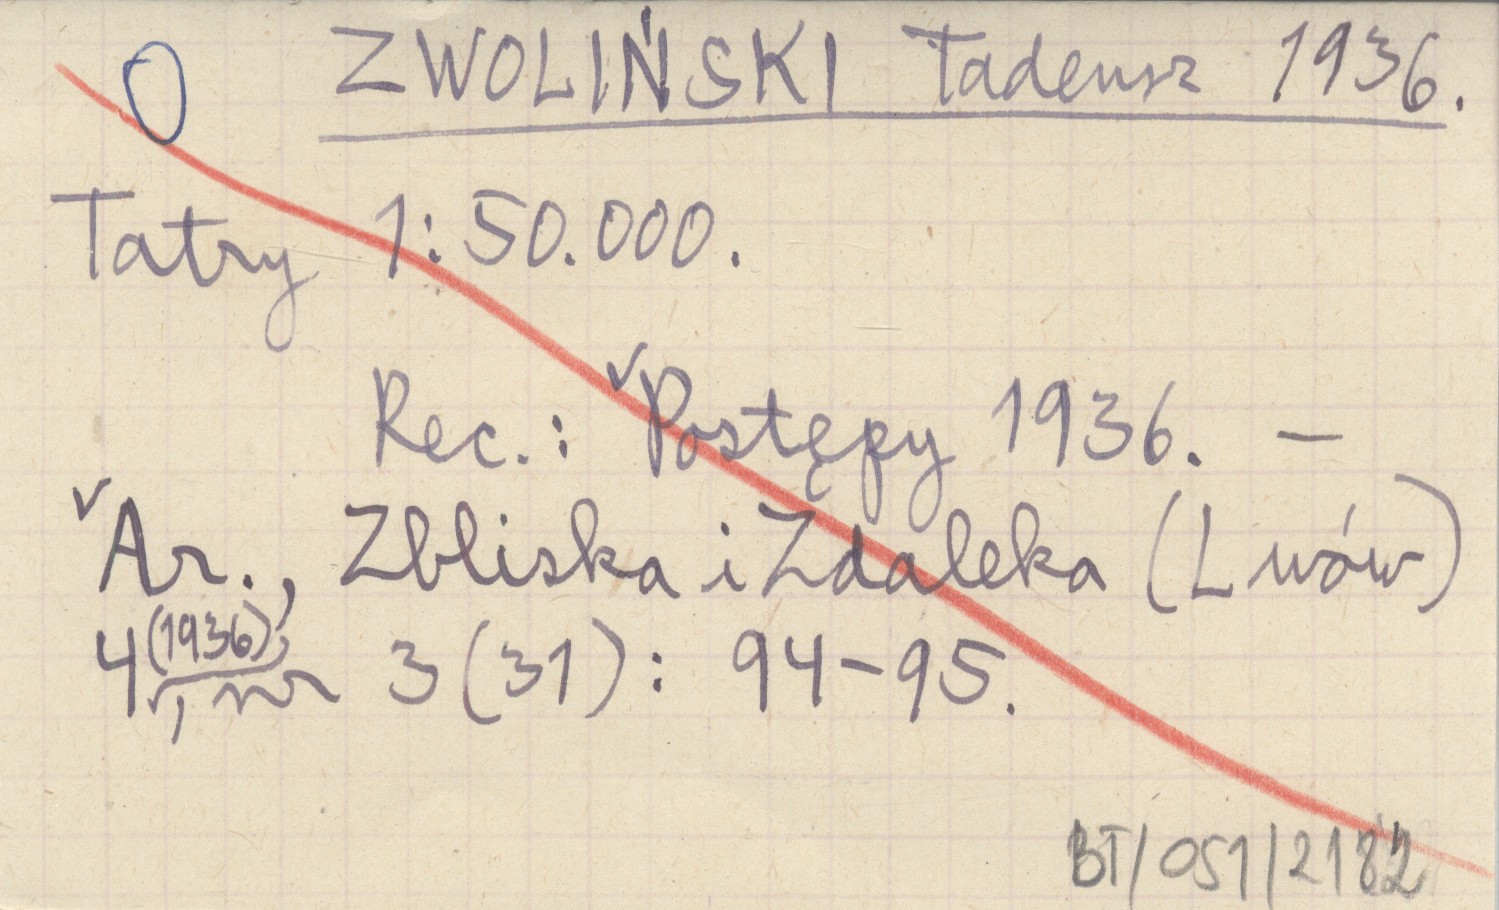 O ZWOLIŃSKI Tadeusz 1936.
Tatry 1:50.000.
Rec.: Postępy 1936. —
Ar., Zbliska i Zdaleka (Lwów)
4 (1936), nr 3 (31): 94-95.
BT/051/2182